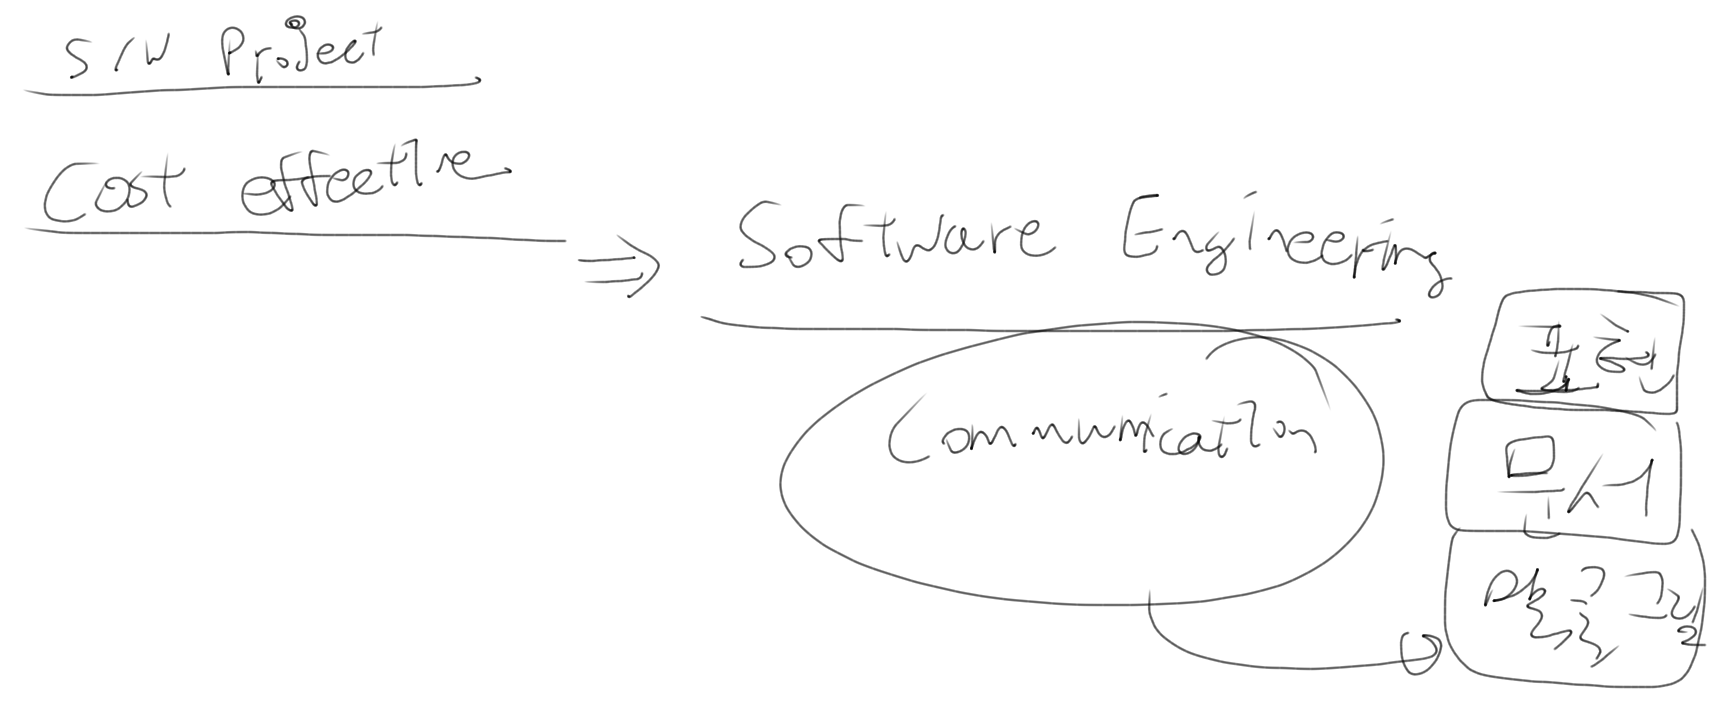 S/W Project
Cost effective
⇒ Software Engineering
Communication
표현
문서
말글그림